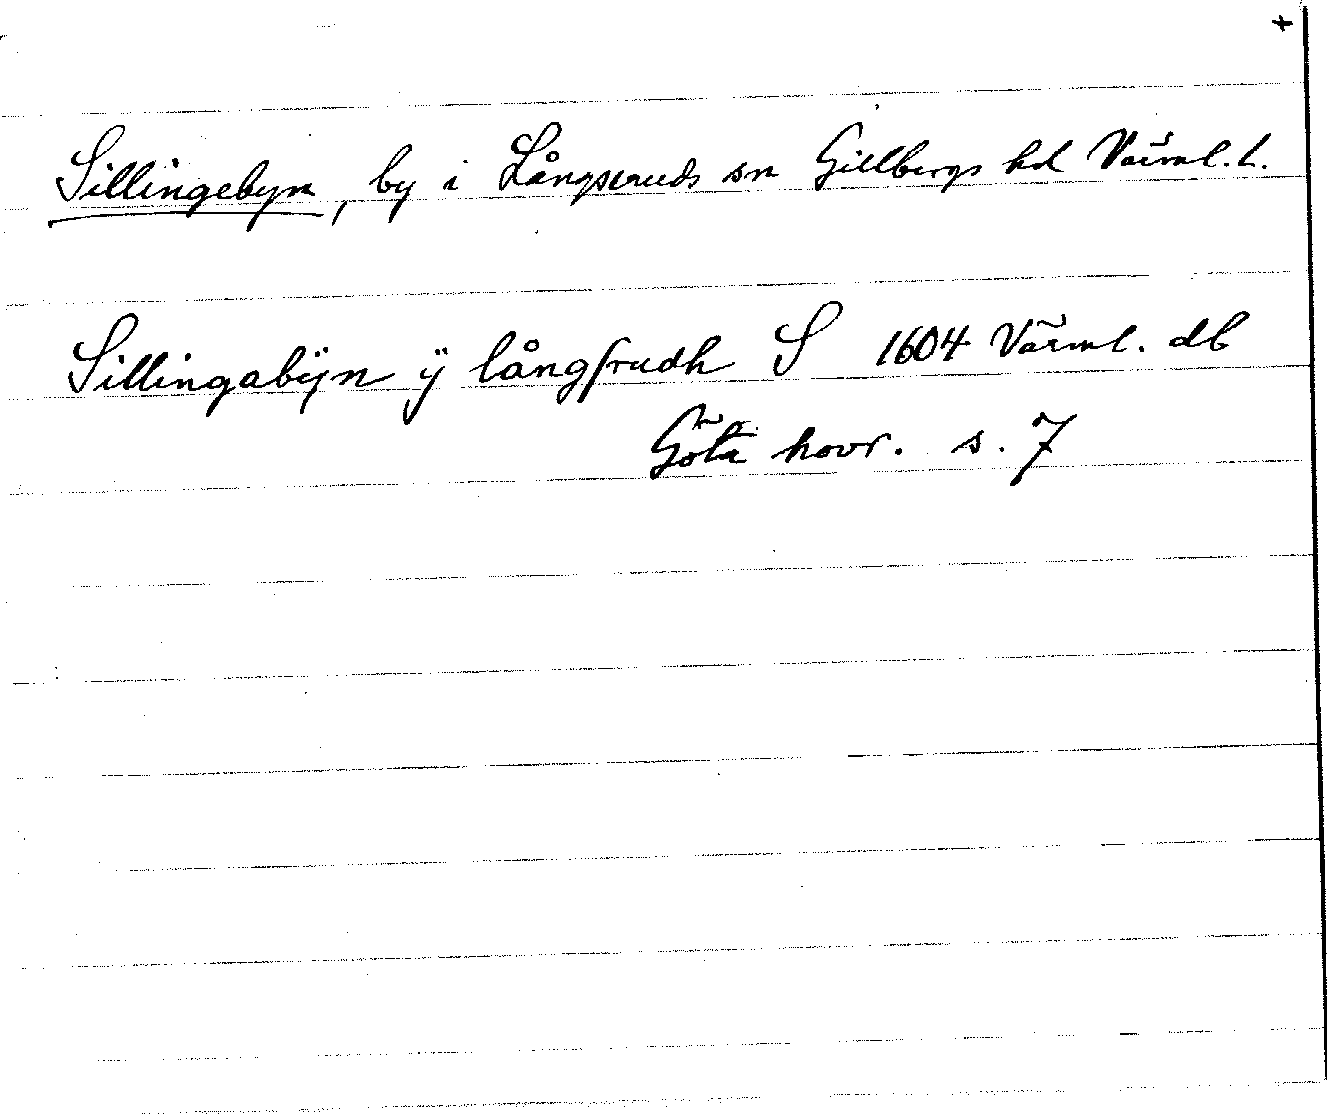 +
Sillingebyn, by i Långseruds sn Gillbergs hd Värml. l.
Sillingabÿn ÿ långſrudh S 1604 Värml. db
Göta hovr. s. 7